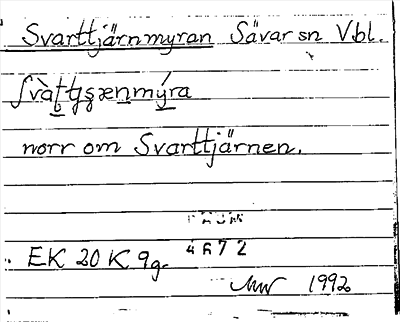 Svarttjärnmyran Sävar sn Vbl.
norr om Svarttjärnen.
4672
EK 20 K 9g
1992